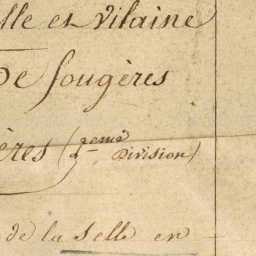 lle et Vilaine
De fougères
ères (2eme Division)
de la Selle en